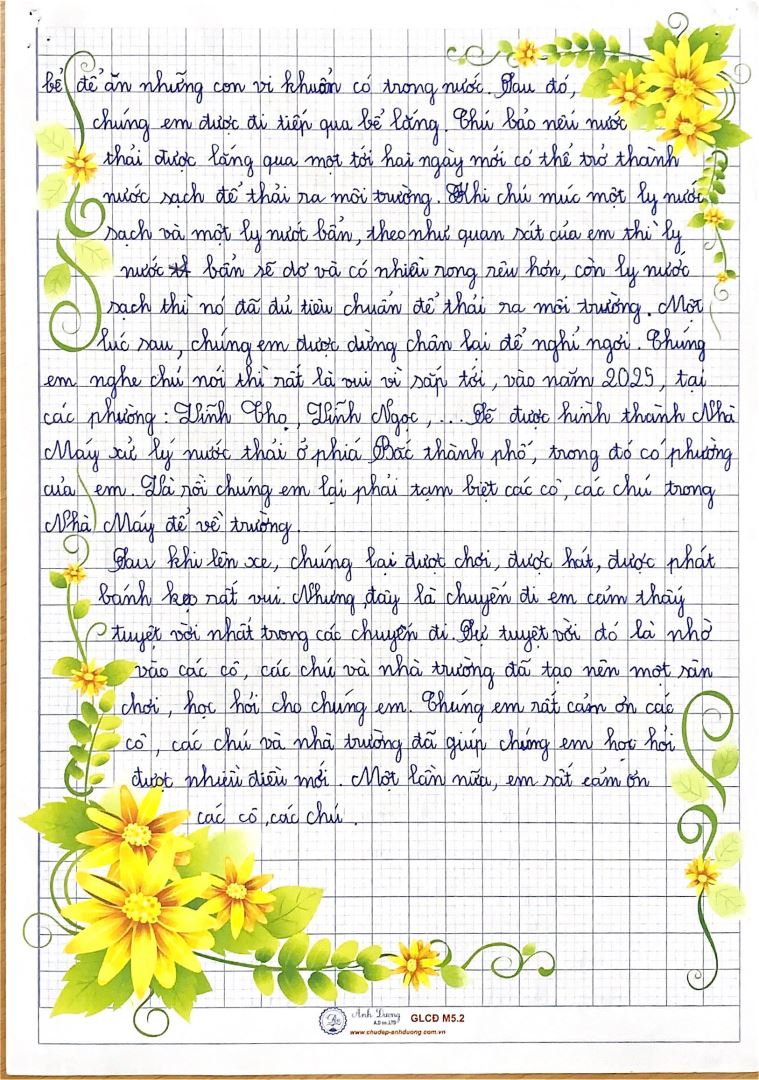 bể để ăn những con vi khuẩn có trong nước. Sau đó,
chúng em được đi tiếp qua bể lắng. Chú bảo nếu nước
thải được lắng qua một tới hai ngày mới có thể trở thành
nước sạch để thải ra môi trường. Khi chú múc một ly nước
sạch và một ly nướt bẩn, theo như quan sát của em thì ly
nước bẩn sẽ dơ và có nhiều rong rêu hơn, còn ly nước
sạch thì nó đã đủ tiêu chuẩn để thải ra môi trường. Một
lúc sau, chúng em được dừng chân lại để nghỉ ngơi. Chúng
em nghe chú nói thì rất là vui vì sắp tới, vào năm 2025, tại
các phường: Vĩnh Thọ, Vĩnh Ngọc, ... Sẽ được hình thành Nhà
Máy xử lý nước thải ở phía Bắc thành phố, trong đó có phường
của em. Và rồi chúng em lại phải tạm biệt các cô, các chú trong
Nhà Máy để về trường.
Sau khi lên xe, chúng lại đượt chơi, được hát, được phát
bánh kẹo rất vui. Nhưng, đây là chuyến đi em cảm thấy
tuyệt vời nhất trong các chuyến đi. Sự tuyệt vời đó là nhờ
vào các cô, các chú và nhà trường đã tạo nên một sân
chơi, học hỏi cho chúng em. Chúng em rất cảm ơn các
cô, các chú và nhà trường đã giúp chúng em học hỏi
đượt nhiều điều mới. Một lần nữa, em rất cảm ơn
các cô, các chú.
Anh Dương
A.D co.,LTD
GLCD M5.2
www.chudep-anhduong.com.vn